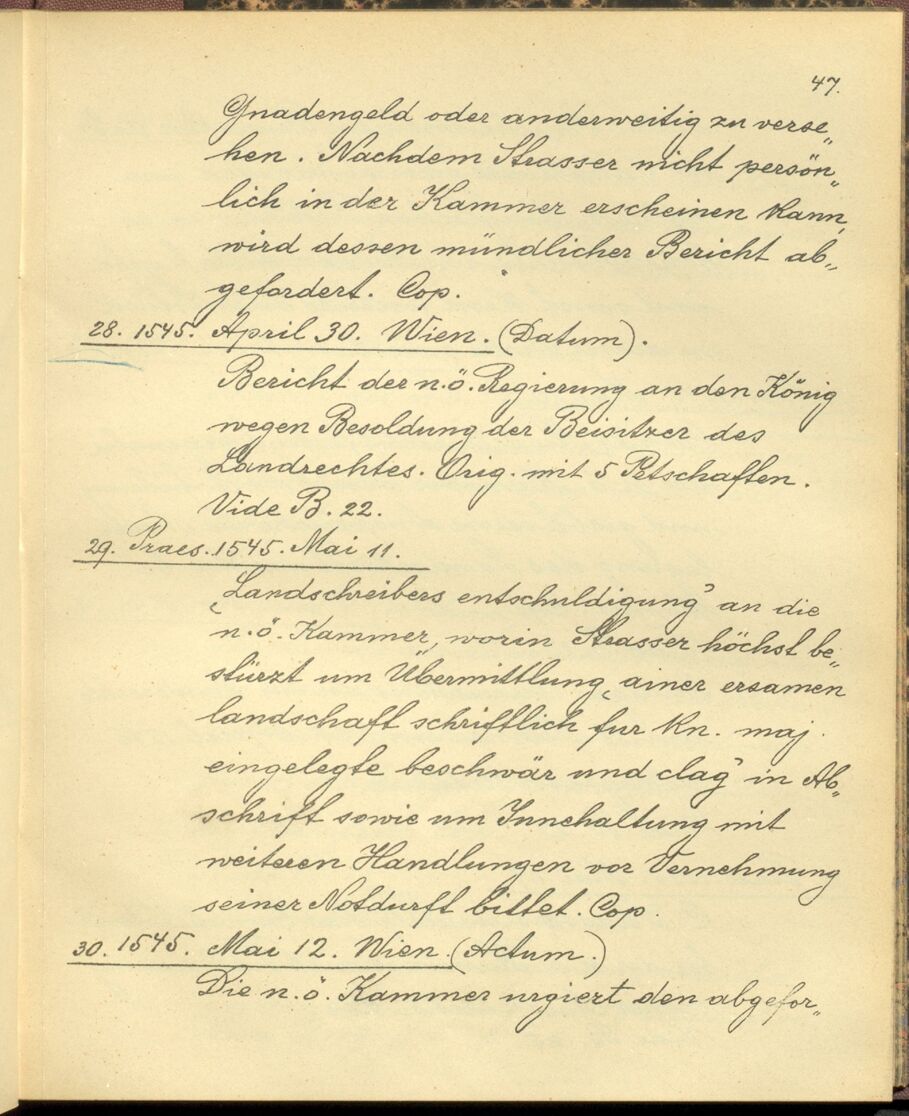 47.
Gnadengeld oder anderweitig zu verse„
hen. Nachdem Strasser nicht persön„
lich in der Kammer erscheinen kann,
wird dessen mündlicher Bericht ab„
gefordert. Cop.
28. 1545. April 30. Wien. (Datum).
Bericht der n.ö. Regierung an den König
wegen Besoldung der Beisitzer des
Landrechtes. Orig. mit 5 Petschaften.
Vide B. 22.
29. Praes. 1545. Mai 11.
„Landschreibers entschuldigung" an die
n.ö. Kammer, worin Strasser höchst be„
stürzt um Übermittlung „ainer ersamen
landschaft schriftlich fur kn. maj.
eingelegte beschwär und clag" in Ab„
schrift sowie um Innehaltung mit
weiteren Handlungen vor Vernehmung
seiner Notdurft bittet. Cop.
30. 1545. Mai 12. Wien. (Actum.)
Die n.ö. Kammer urgiert den abgefor„